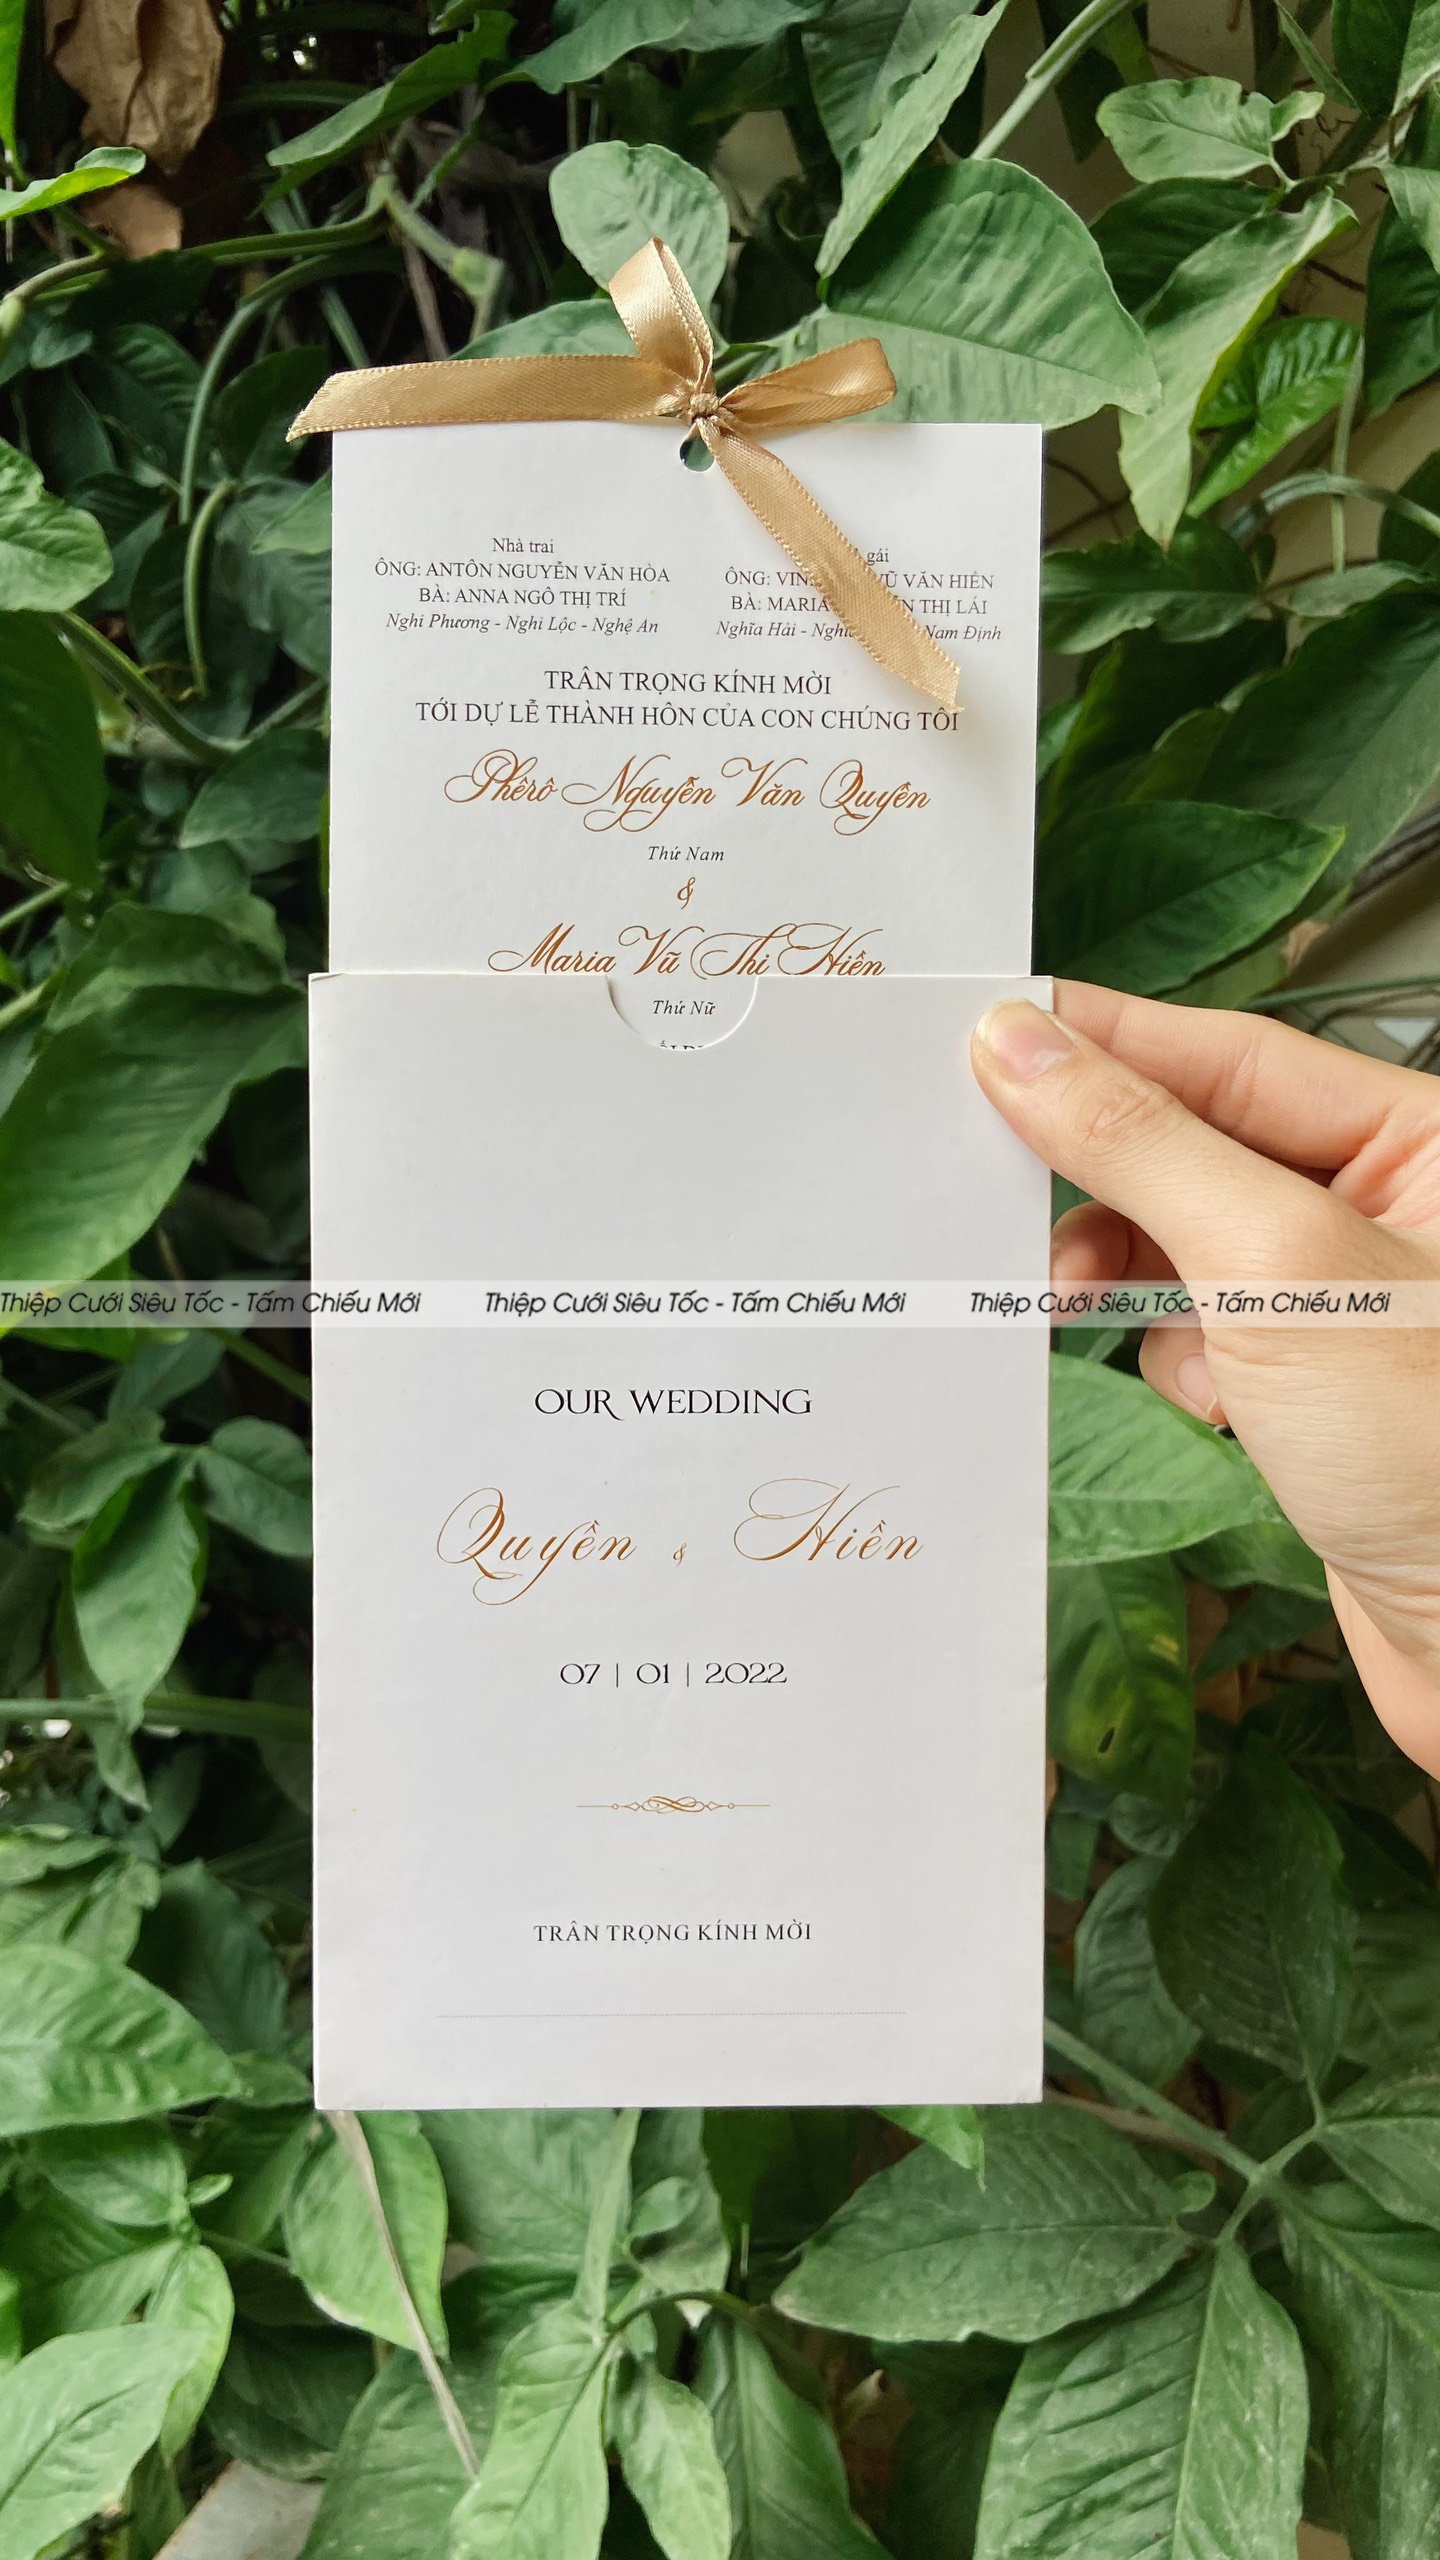 Nhà trai
ÔNG: ANTÔN NGUYỄN VĂN HÒA
BÀ: ANNA NGÔ THỊ TRÍ
Nghi Phương - Nghi Lộc - Nghệ An
gái
ÔNG: VŨ VĂN HIỀN
BÀ: MARIA THỊ LÁI
Nghĩa Hải - Nam Định
TRÂN TRỌNG KÍNH MỜI
TỚI DỰ LỄ THÀNH HÔN CỦA CON CHÚNG TÔI
Phêrô Nguyễn Văn Quyền
Thứ Nam
&
Maria Vũ Thị Hiền
Thứ Nữ
Thiệp Cưới Siêu Tốc - Tấm Chiếu Mới Thiệp Cưới Siêu Tốc - Tấm Chiếu Mới Thiệp Cưới Siêu Tốc - Tấm Chiếu Mới
OUR WEDDING
Quyền & Hiền
07 | 01 | 2022
TRÂN TRỌNG KÍNH MỜI